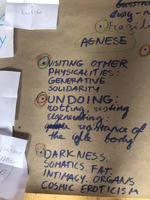 AGNESE
VISITING OTHER
PHYSICALITIES:
GENERATIVE
SOLIDARITY
UNDOING:
rotting, resting
regenerating:
resistance of
the idle body
DARKNESS.
SOMATICS, FAT.
INTIMACY. ORGANS
COSMIC EROTICISM